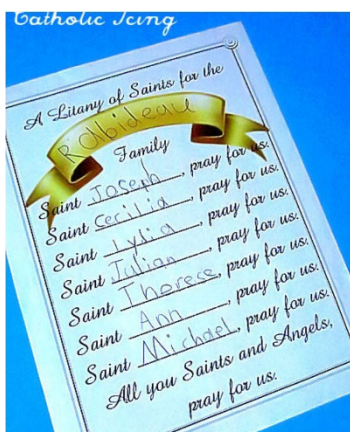 Catholic Icing
A Litany of Saints for the
Rabideau
Family
Saint Joseph, pray for us.
Saint Cecilia, pray for us.
Saint Lydia, pray for us.
Saint Julian, pray for us.
Saint Therese, pray for us.
Saint Ann, pray for us.
Saint Michael, pray for us.
All you Saints and Angels,
pray for us.